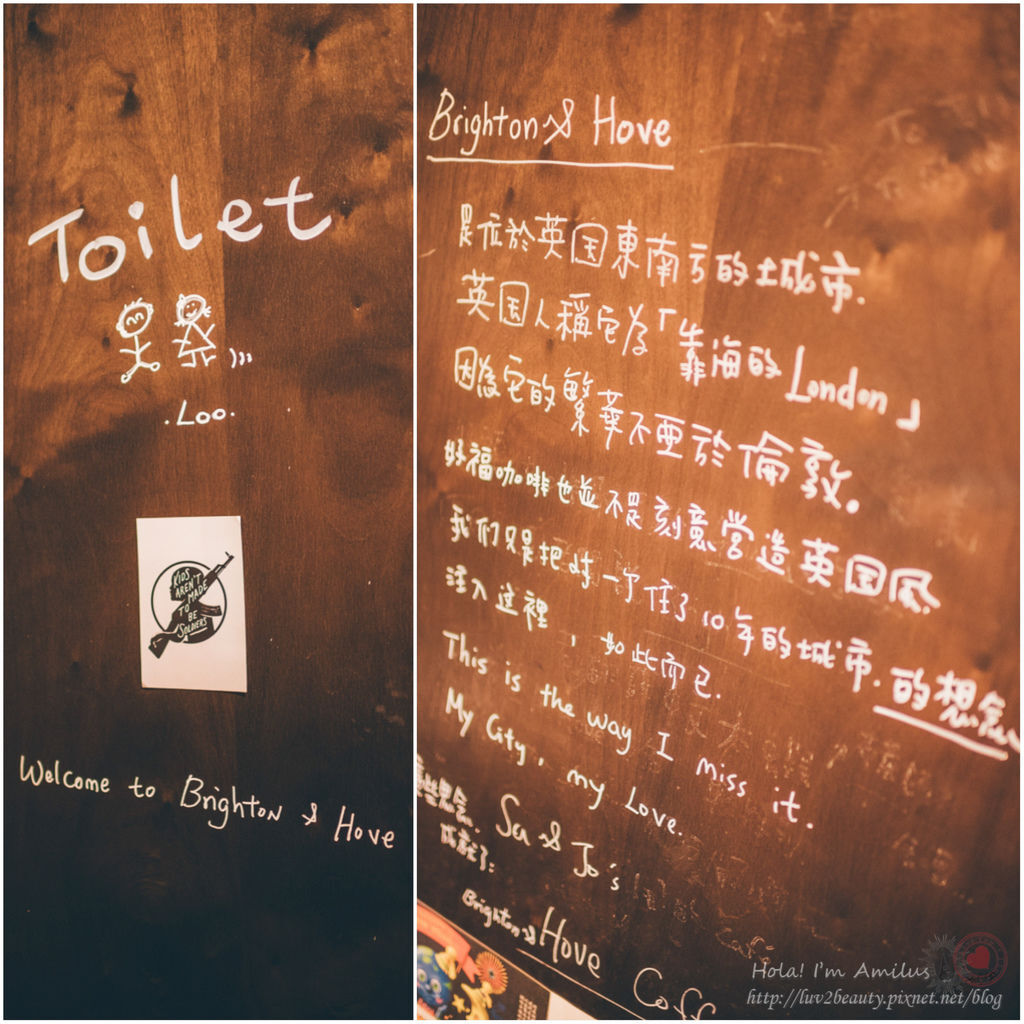 Toilet
Loo.
KIDS
AREN'T
MADE
TO
BE
SOLDIERS
Welcome to Brighton & Hove
Brighton & Hove
是位於英国東南方的城市.
英国人稱它為「靠海的London」
因為它的繁華不亞於倫敦。
好福咖啡也並不是刻意營造英国風
我们只是把对一个住了10年的城市.的想念
注入這裡，如此而已.
This is the way I miss it.
My City, my Love.
這些想念.
成就了:
Sa & Jo's
Brighton & Hove Coff
Hola! I'm Amilus
http://luv2beauty.pixnet.net/blog